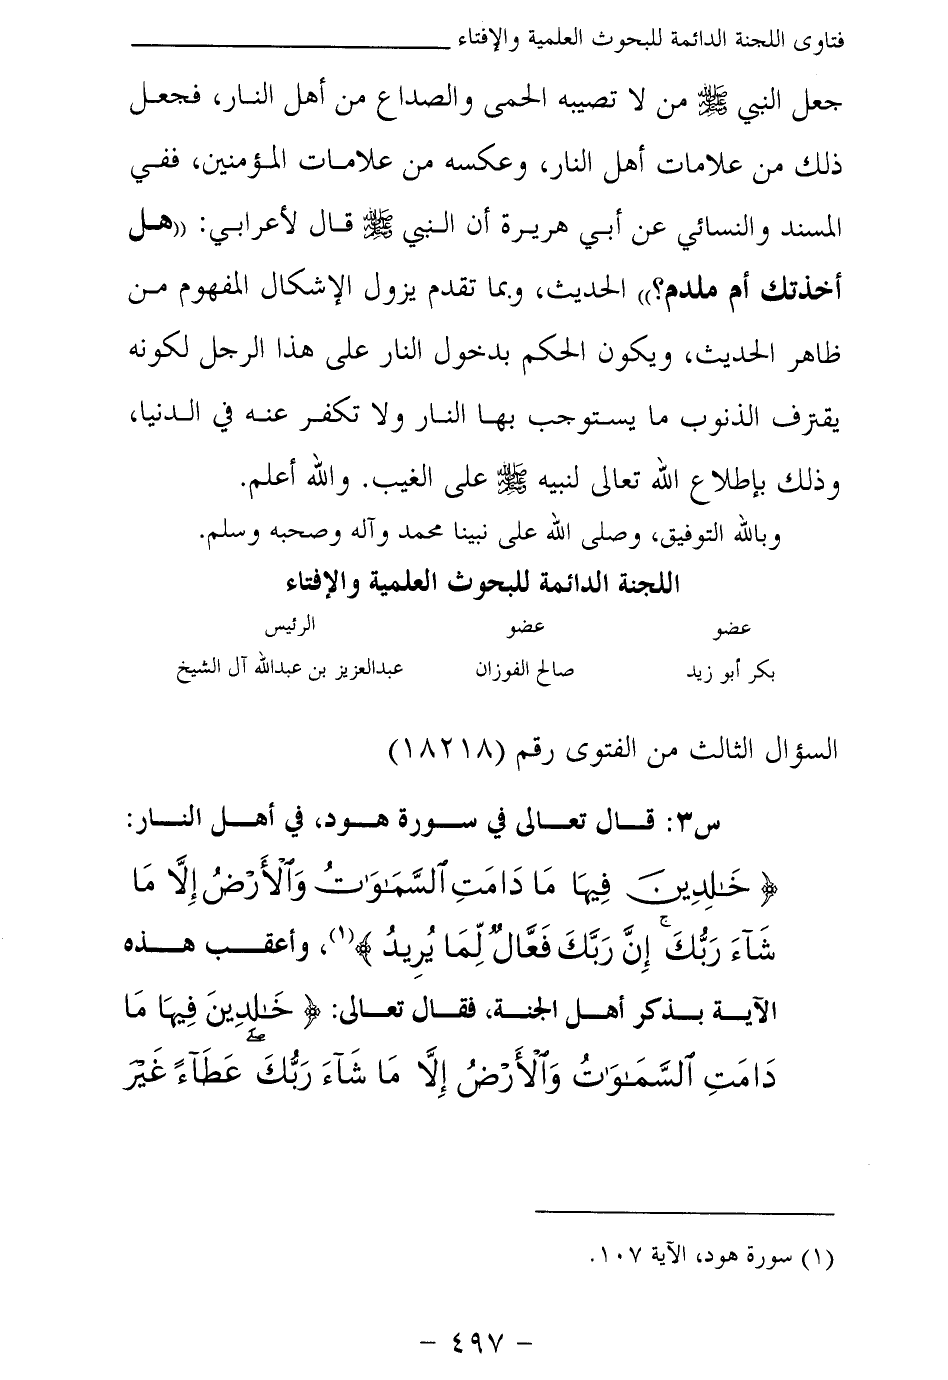 فتاوى اللجنة الدائمة للبحوث العلمية والإفتاء
جعل النبي ﷺ من لا تصيبه الحمى والصداع من أهل النار، فجعل
ذلك من علامات أهل النار، وعكسه من علامات المؤمنين، ففي
المسند والنسائي عن أبي هريرة أن النبي ﷺ قال لأعرابي: ((هل
أخذتك أم ملدم؟)) الحديث، وبما تقدم يزول الإشكال المفهوم من
ظاهر الحديث، ويكون الحكم بدخول النار على هذا الرجل لكونه
يقترف الذنوب ما يستوجب بها النار ولا تكفر عنه في الدنيا،
وذلك بإطلاع الله تعالى لنبيه ﷺ على الغيب. والله أعلم.
وبالله التوفيق، وصلى الله على نبينا محمد وآله وصحبه وسلم.
اللجنة الدائمة للبحوث العلمية والإفتاء
عضو عضو الرئيس
بكر أبو زيد صالح الفوزان عبدالعزيز بن عبدالله آل الشيخ
السؤال الثالث من الفتوى رقم (١٨٢١٨)
س٣: قال تعالى في سورة هود، في أهل النار:
﴿ خَـٰلِدِينَ فِيهَا مَا دَامَتِ ٱلسَّمَـٰوَٰتُ وَٱلْأَرْضُ إِلَّا مَا
شَآءَ رَبُّكَ ۚ إِنَّ رَبَّكَ فَعَّالٌ لِّمَا يُرِيدُ ﴾(١)، وأعقب هذه
الآية بذكر أهل الجنة، فقال تعالى: ﴿ خَـٰلِدِينَ فِيهَا مَا
دَامَتِ ٱلسَّمَـٰوَٰتُ وَٱلْأَرْضُ إِلَّا مَا شَآءَ رَبُّكَ ۖ عَطَآءً غَيْرَ
(١) سورة هود، الآية ١٠٧.
- ٤٩٧ -